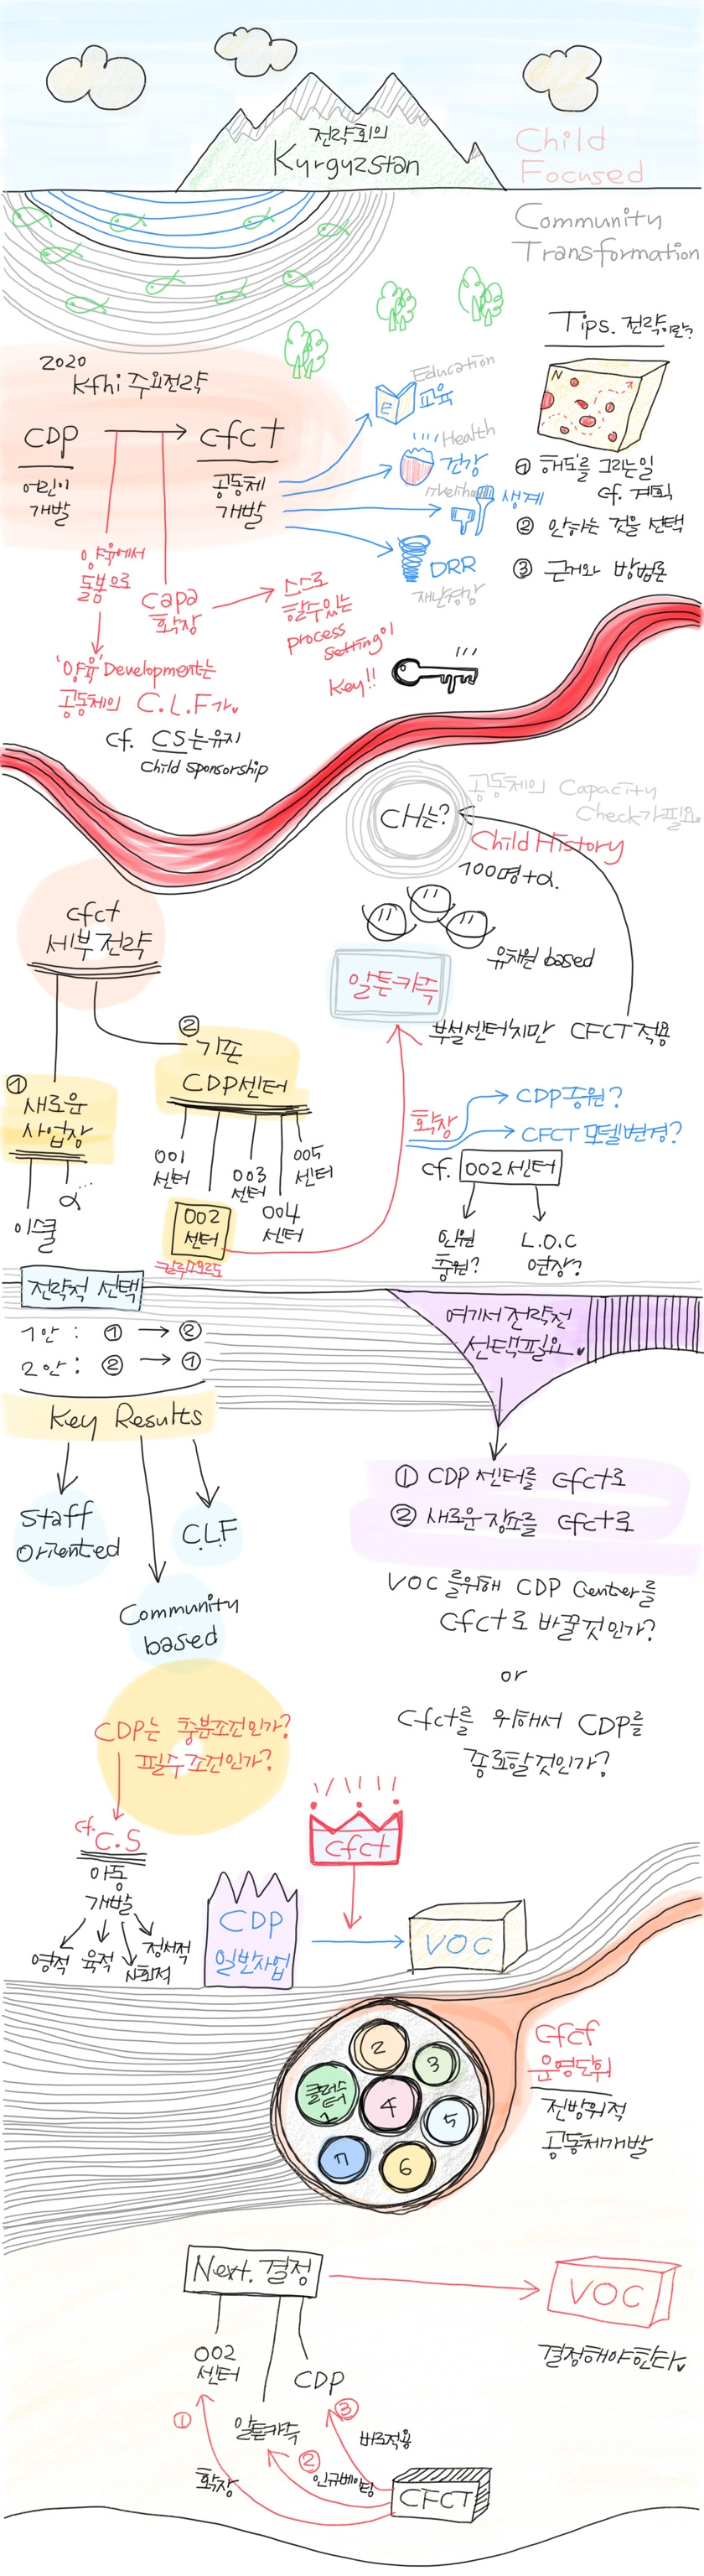 전략회의
Kyrgyzstan
Child
Focused
Community
Transformation
Tips. 전략이란?
N
① 해도를 그리는일
cf. 계획
② 안하는 것을 선택
③ 근거와 방법론
2020
Kfhi 주요전략
CDP
어린이
개발
cfct
공동체
개발
Education
E
교육
Health
건강
생계
DRR
재난경감
양육에서
돌봄으로
capa
확장
스스로
할수있는
process
setting이
Key!!
'양육' Development는
공동체의 C.L.F가
cf. CS는유지
child sponsorship
CH는?
공동체의 Capacity
Check가필요
Child History
100명+α.
유치원 based
cfct
세부전략
알튼카즉
부설센터지만 CFCT적용
①
새로운
사업장
이스쿨
α...
②
기존
CDP센터
001
센터
002
센터
003
센터
004
센터
005
센터
확장
CDP증원?
CFCT 모델변경?
cf. 002센터
인원
증원?
L.O.C
연장?
전략적 선택
1안: ① → ②
2안: ② → ①
여기서 전략적
선택필요
Key Results
Staff
Oriented
Community
based
C.L.F
① CDP 센터를 cfct로
② 새로운장소를 cfct로
VOC를위해 CDP Center를
cfct로 바꿀것인가?
or
cfct를 위해서 CDP를
종료할것인가?
CDP는 충분조건인가?
필수조건인가?
cf.
C.S
아동
개발
영적
육적
사회적
정서적
cfct
CDP
일반사업
VOC
클러스터
1
2
3
4
5
6
7
cfct
운영단위
전방위적
공동체개발
Next. 결정
VOC
결정해야한다
002
센터
알튼카즉
CDP
①
확장
②
인큐베이팅
③
바로적용
CFCT